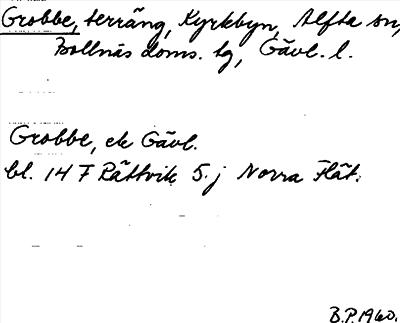 Grobbe, terräng, Kyrkbyn, Alfta sn,
Bollnäs doms. tg, Gävl. l.
Grobbe, ek Gävl.
bl. 14 F Rättvik 5. j Norra Flät.
B.P. 1960.